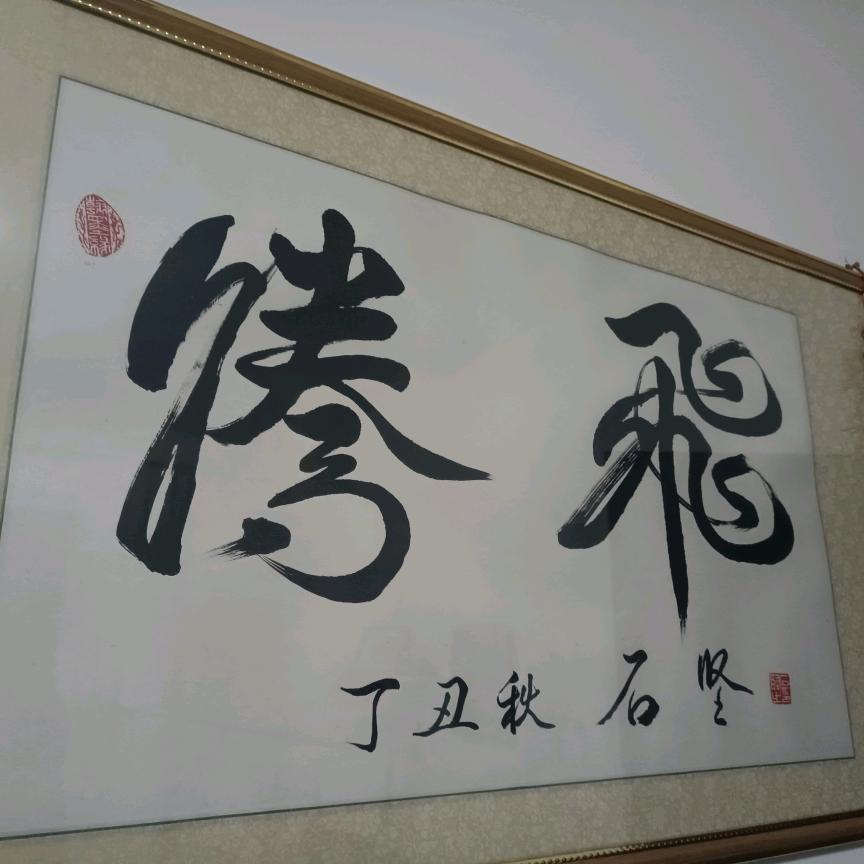 腾飞
丁丑秋 石坚